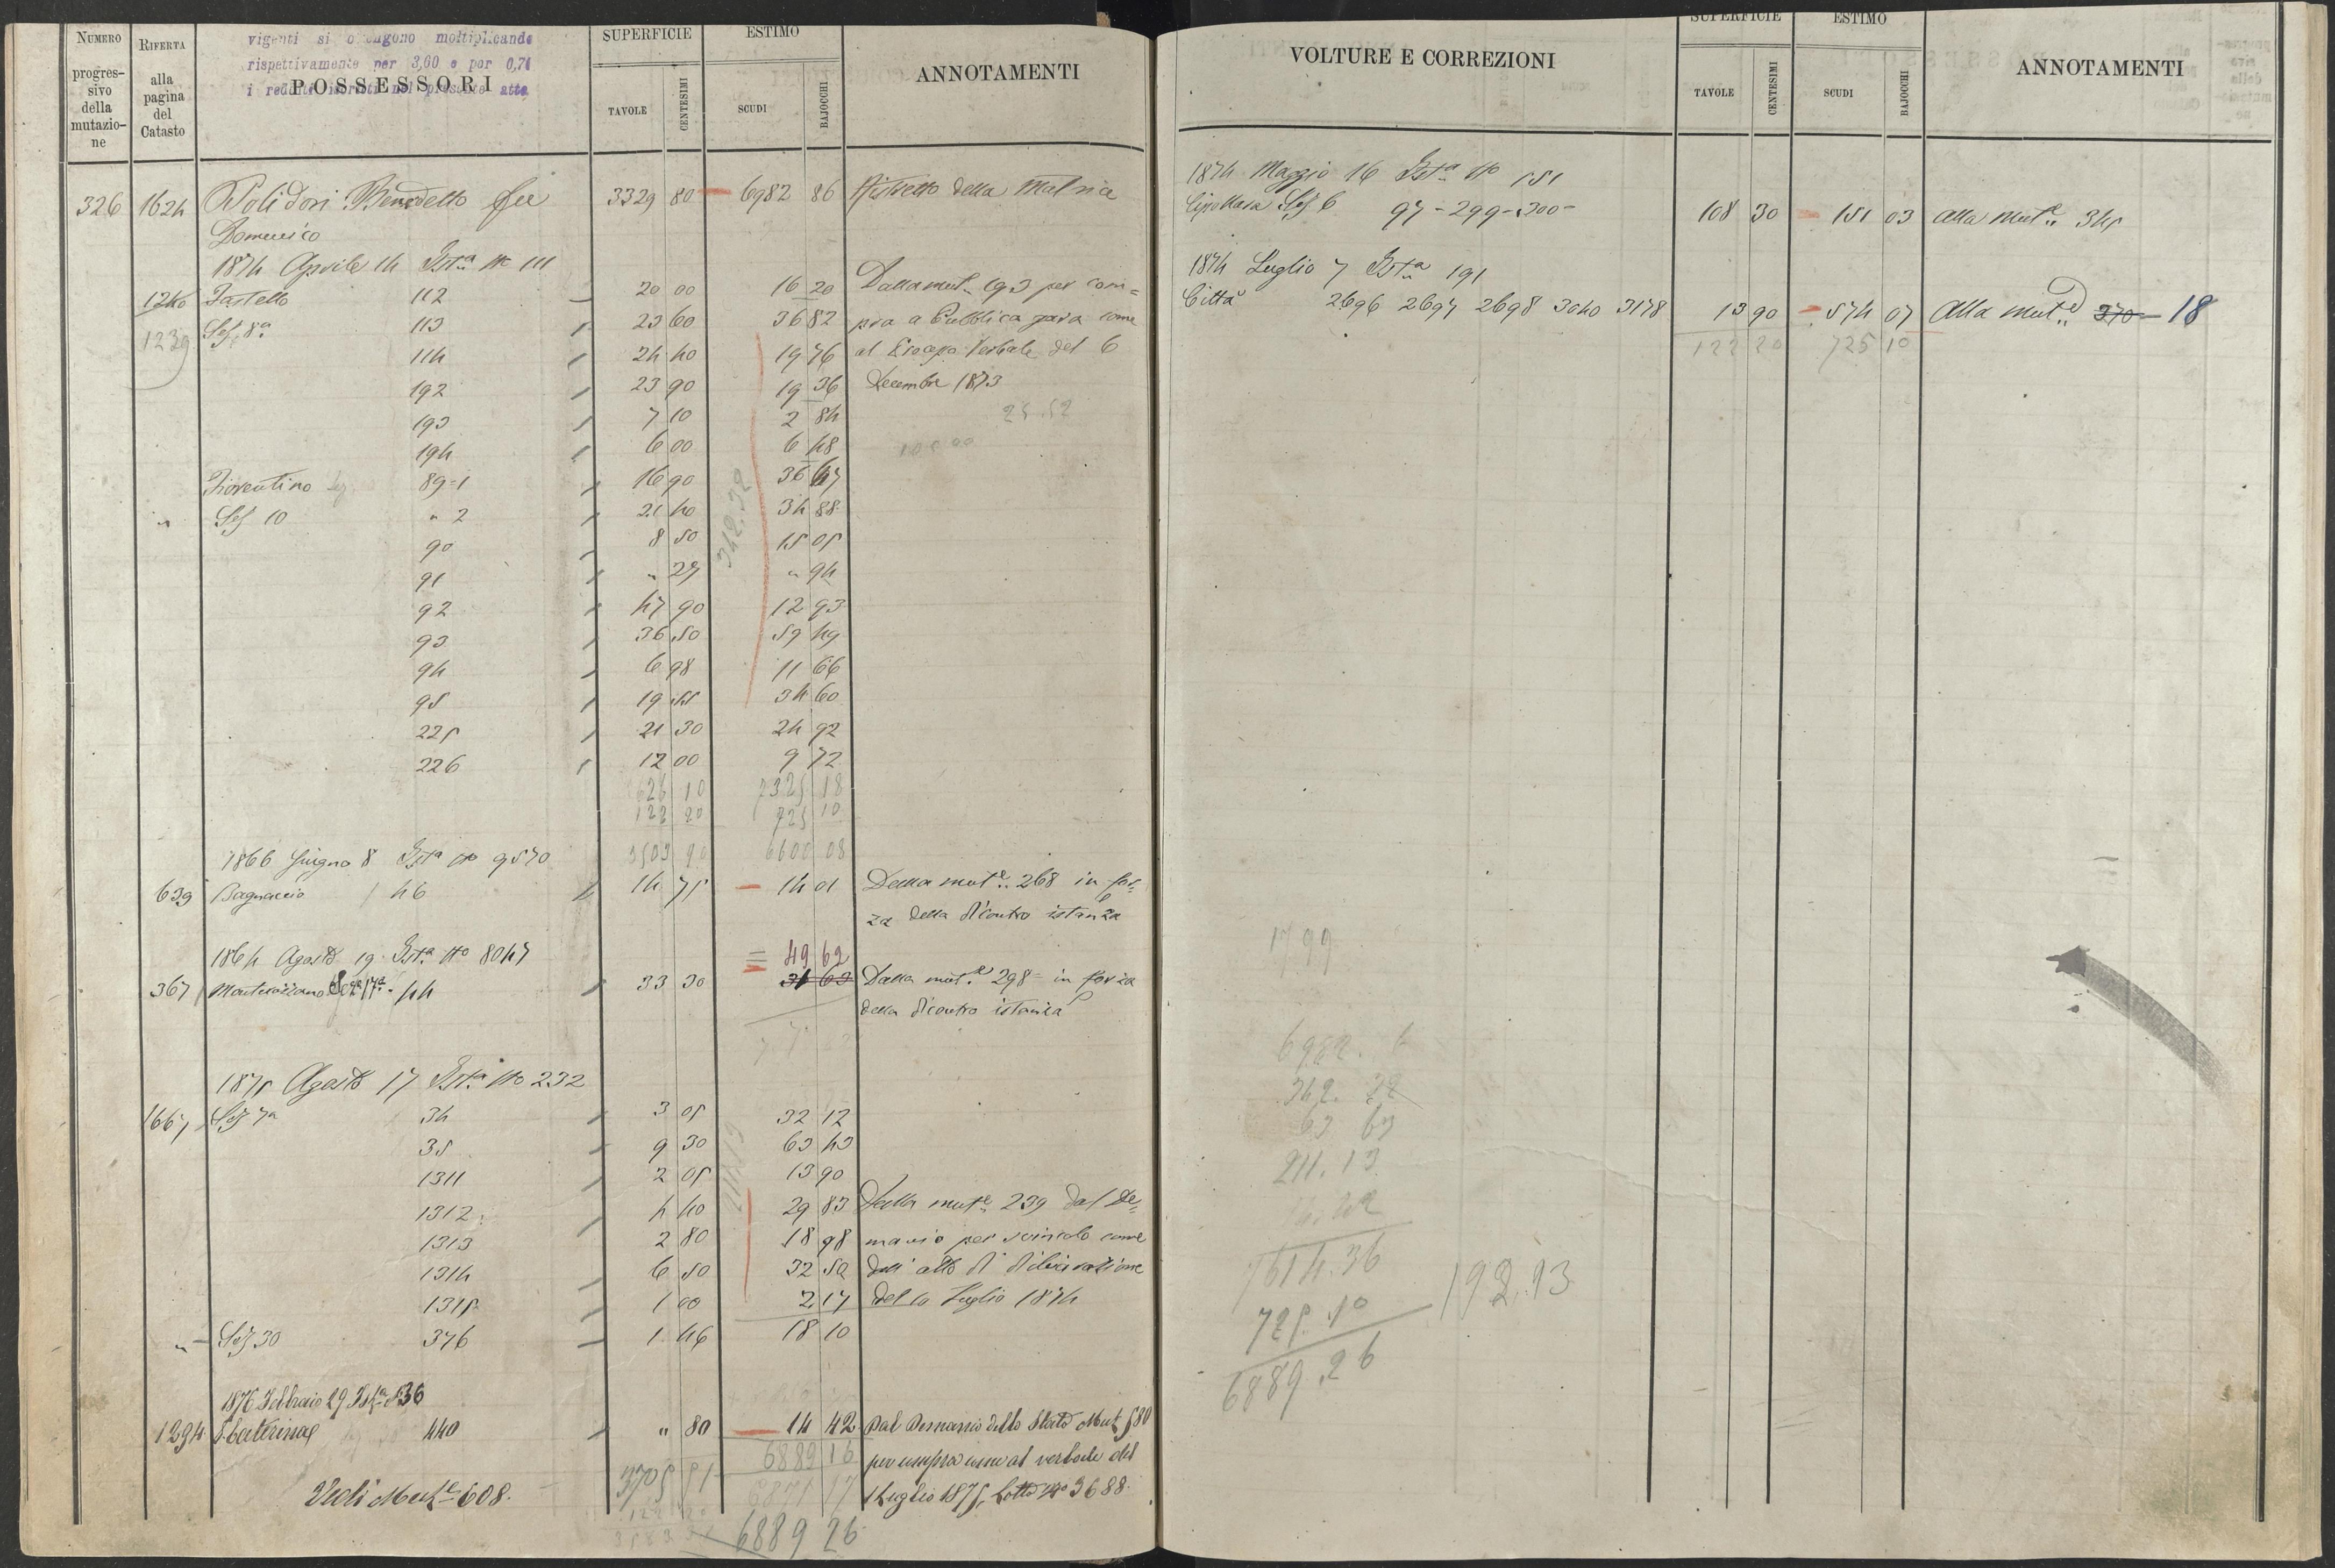 NUMERO progressivo della mutazione
RIFERTA alla pagina del Catasto
vigenti si ottengono moltiplicando
rispettivamente per 3,60 e per 0,71
POSSESSORI
SUPERFICIE
TAVOLE CENTESIMI
ESTIMO
SCUDI BAJOCCHI
ANNOTAMENTI
326 1624 Polidori Benedetto fu 3329 80 6982 86 Ristretto della Matrice
Domenico
1874 Aprile 14 Ista No 111
1240 Fastello 112 20 00 16 20 Dalla mut. 193 per com=
1239 Sez. 8a 113 23 60 36 82 pra a Pubblica gara come
114 24 40 19 76 al Processo Verbale del 6
192 23 90 19 36 Decembre 1873
193 7 10 2 84 25.52
194 6 00 6 48
Fiorentino 89=1 16 90 36 47
" Sez 10 " 2 21 40 34 88
90 8 50 15 05
91 " 27 " 94
92 47 90 12 93
93 36 50 59 49
94 6 98 11 66
95 19 55 34 60
225 21 30 24 92
226 12 00 9 72
342.32
626 10 7325 18
122 20 725 10
3503 90 6600 08
1866 Giugno 8 Ista No 9570
639 Bagnaccio 46 14 75 14 01 Dalla mute. 268 in for=
za della dicontro istanza
1864 Agosto 19 Ista No 8047
49 62
367 Montecozzano Sez 17a 44 33 30 31 63 Dalla mut.e 298 in forza
della dicontro istanza
1875 Agosto 17 Ista No 232
1667 Sez 7a 34 3 05 32 12
35 9 30 63 43
1311 2 05 13 90
1312 4 40 29 83 Dalla mute 239 dal De=
1313 2 80 18 98 manio per svincolo come
1314 6 50 32 50 dall'atto di
1315 1 00 2 17 del 10 Luglio 1874
" Sez 30 376 1 46 18 10
211.13
1876 Febbraio 29 Ista 536
1294 S. Caterina 440 " 80 14 42 Dal Demanio dello Stato Mut. 580
6889 16 per compra come al verbale del
3705 51 6871 17 1 Luglio 1875, Lotto No 3688.
Vedi Mute 608.
122 20
6889 26
VOLTURE E CORREZIONI
SUPERFICIE
TAVOLE CENTESIMI
ESTIMO
SCUDI BAJOCCHI
ANNOTAMENTI
1874 Maggio 16 Ista No 151
Sez 6 97-299-300- 108 30 151 03 alla mute. 345
1874 Luglio 7 Ista 191
Città 2696 2697 2698 3040 3178 13 90 574 07 Alla mute. 370 18
122 20 725 10
1799
6982. 6
342. 32
63 63
211.13
7614.36 192.13
725.10
6889.26